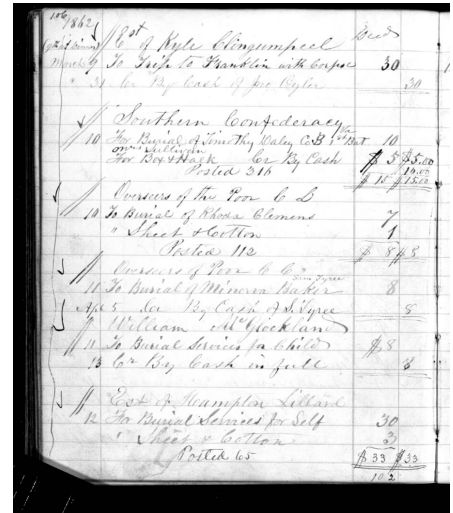 106
1862
Est of Kyle Clingumpeel Died
March 9 To Trip to Franklin with Corpse 30
" 31 Cr By Cash of Jno 30
Southern Confederacy
10 For Burial of Timothy Daley Co B 1st Bat 10
Mrs Sullivan
For Box & Hack Cr By Cash $5 $5.00
10.00
Posted 316 $15 $15.00
Overseers of the Poor C L
10 To Burial of Rhoda Clemens 7
" Sheet & Cotton 1
Posted 112 $8 $8
Overseers of Poor C C
Sim Tyree
11 To Burial of Minerva Baker 8
Apl 5 By Cash of S. Tyree 8
William McGlockland
11 To Burial Services for Child $8
13 Cr By Cash in full 8
Est of Hampton Lillard
12 For Burial Services for Self 30
" Sheet & Cotton 3
Posted 65 $33 $33
102